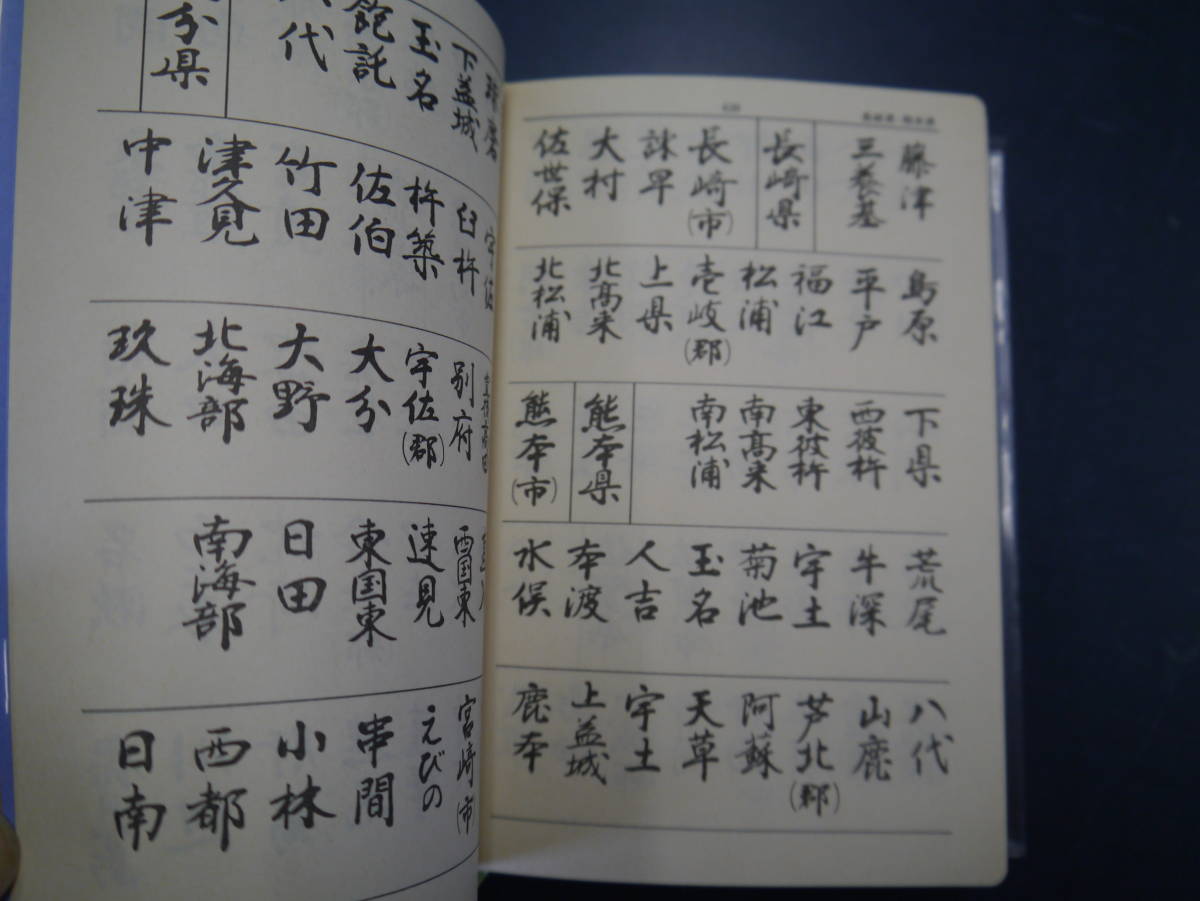 長崎県・熊本県
藤津
三養基
長崎県
長崎(市)
諫早
大村
佐世保
島原
平戸
福江
松浦
壱岐(郡)
上県
北高来
北松浦
下県
西彼杵
東彼杵
南高来
南松浦
熊本県
熊本(市)
荒尾
牛深
宇土
菊池
玉名
人吉
本渡
水俣
八代
山鹿
芦北(郡)
阿蘇
天草
宇土
上益城
鹿本
球磨
下益城
玉名
飽託
代
分県
宇佐
臼杵
杵築
佐伯
竹田
津久見
中津
豊後高田
別府
宇佐(郡)
大分
大野
北海部
玖珠
西国東
速見
東国東
日田
南海部
宮崎(市)
えびの
串間
小林
西都
日南